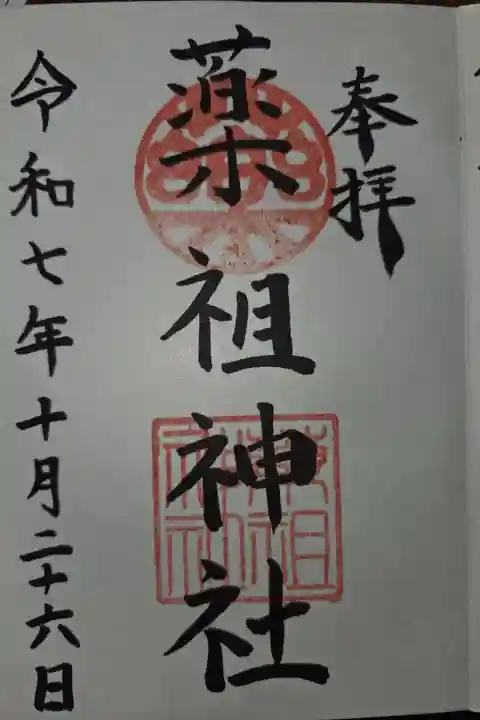 奉拝
薬祖神社
薬祖神社
令和七年十月二十六日